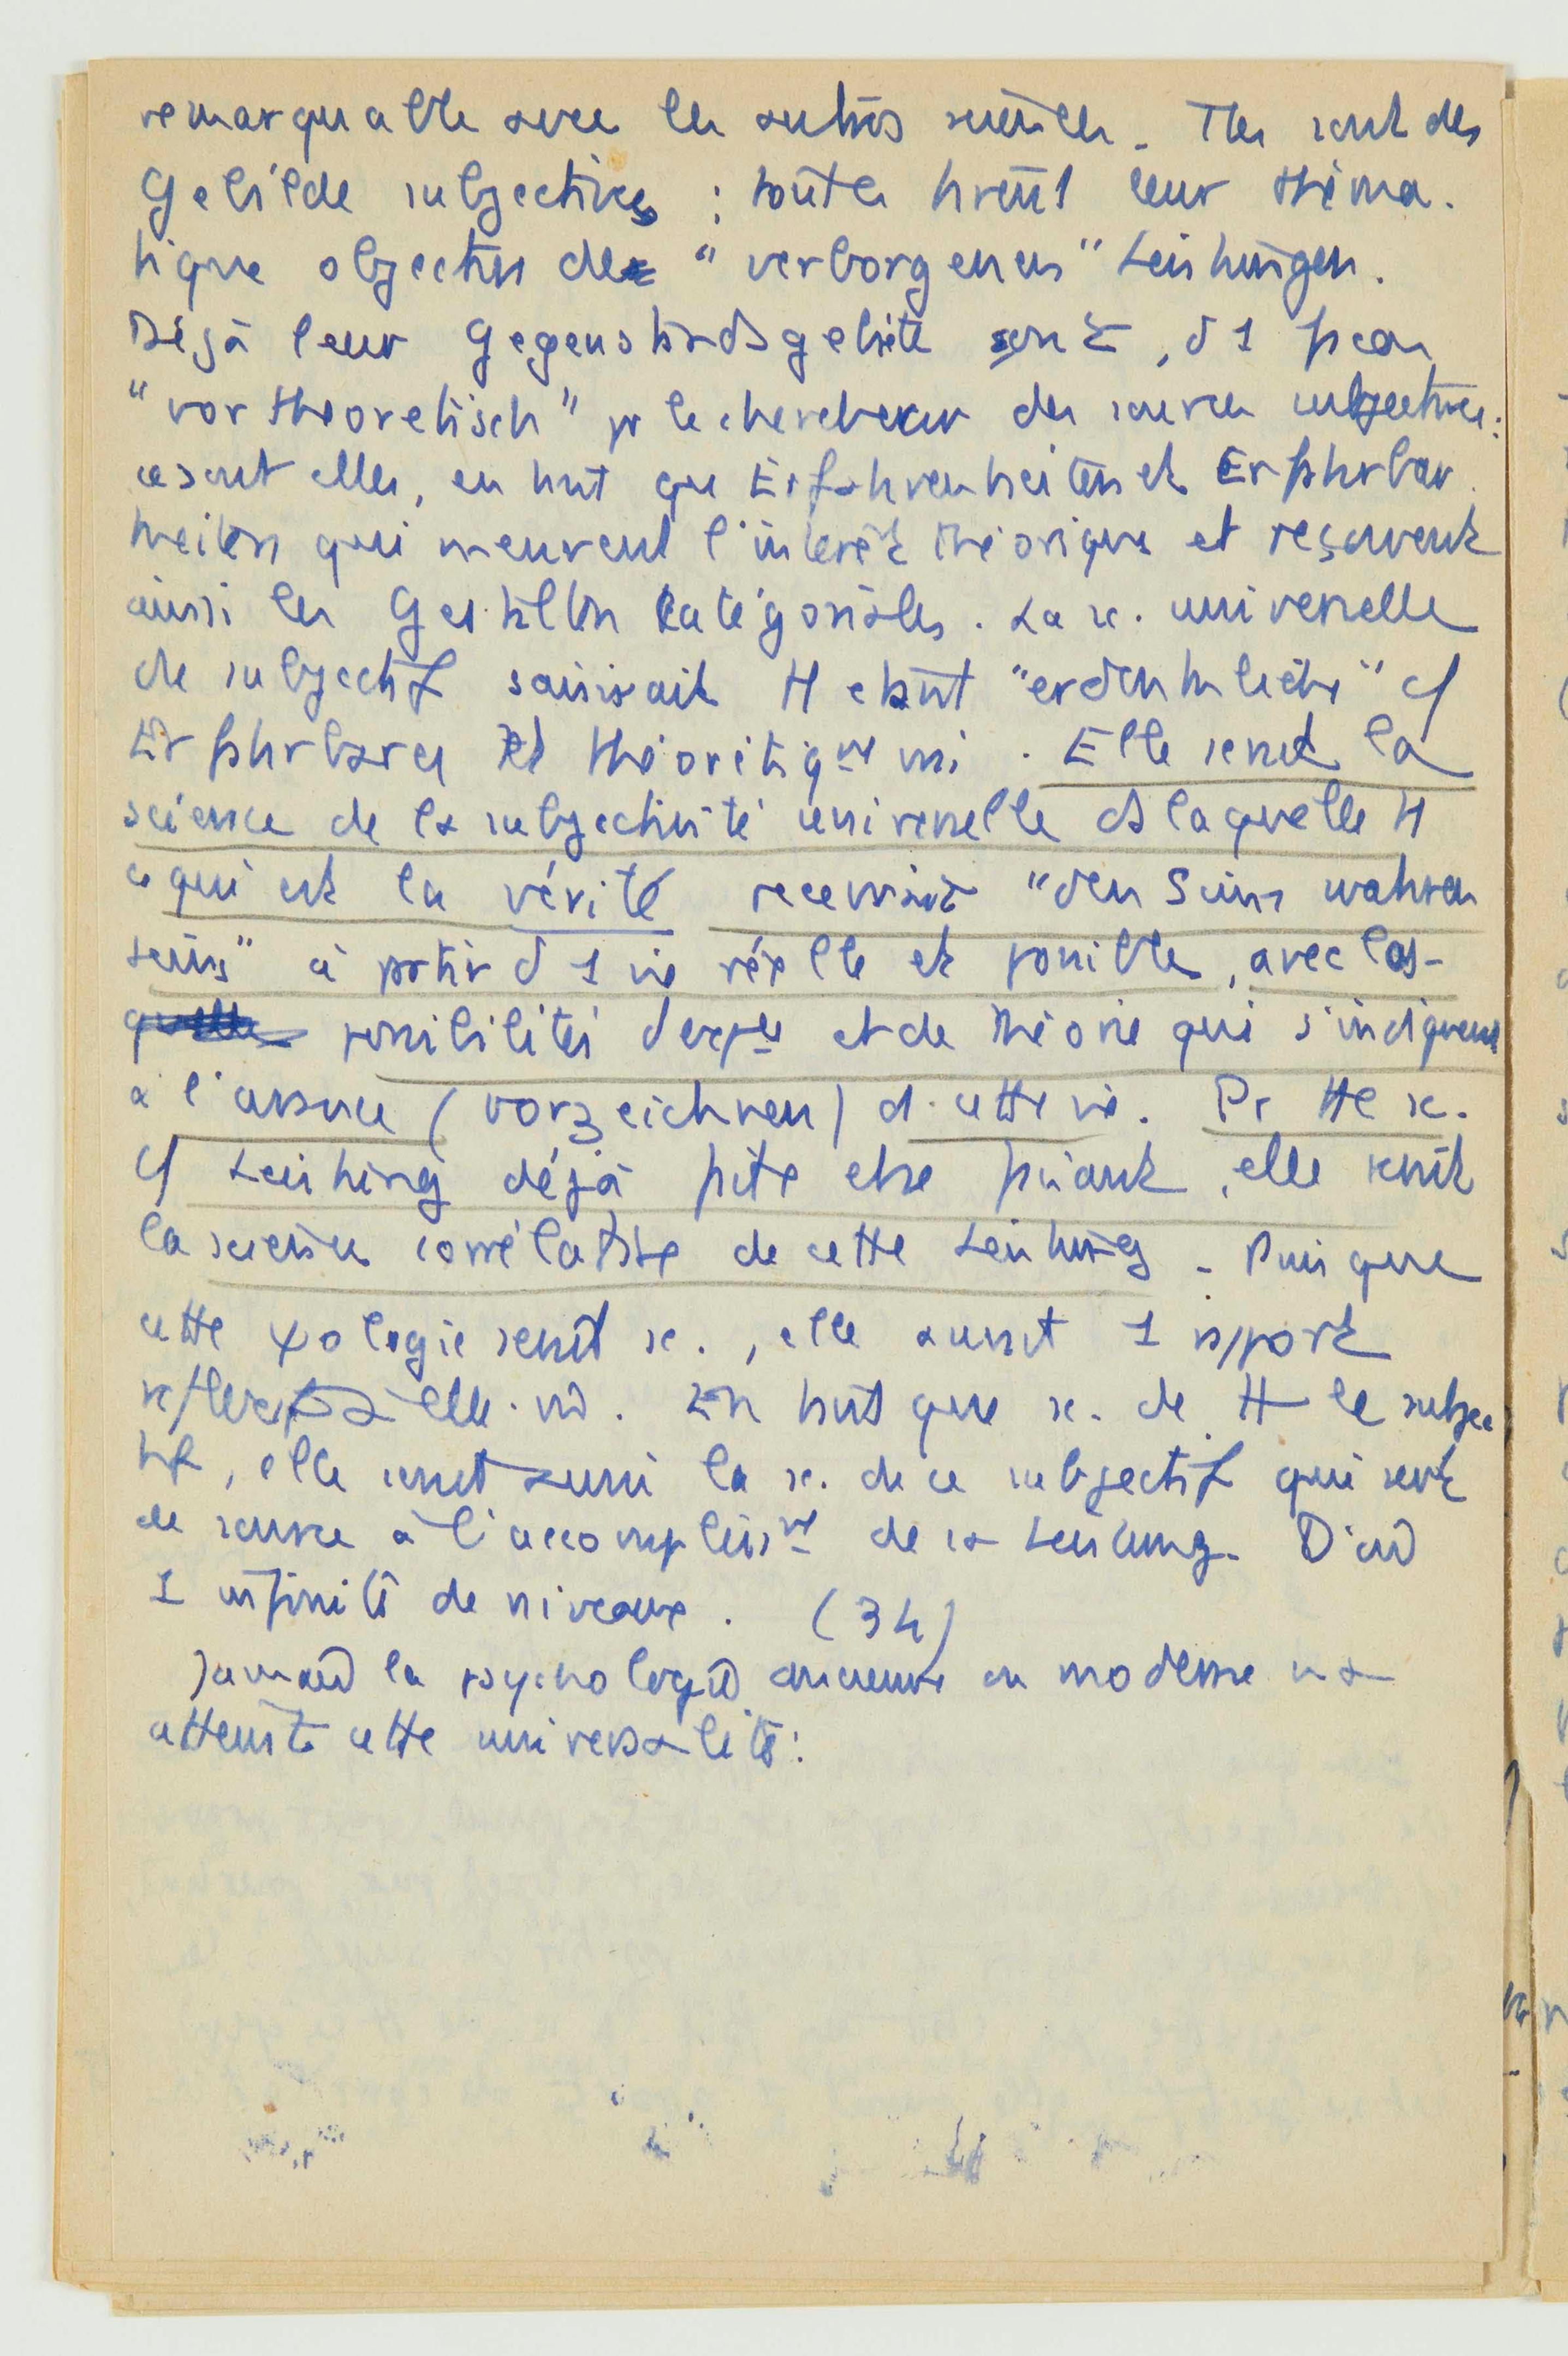 remarquable avec les autres sciences. Ttes sont des
Gebilde subjectives ; toutes tirent leur théma-
tique objective de "verborgenen" Leistungen.
Déjà leur Gegenstandsgebiete sont, d 1 façon
"vortheoretisch" pr le chercheur des sources subjectives :
ce sont elles, en tant que Erfahrenheiten et Erfahrbar-
heiten qui meuvent l'intérêt théorique et reçoivent
ainsi les Gestalten kategoriales. La sc. universelle
de subjectif saisirait tt étant "erdenkliche" c/
Erfahrbares et théoritiqt vrai. Elle serait la
science de la subjectivité universelle ds laquelle tt
ce qui est la vérité recevrait "den Sinn wahren
Seins" à partir d 1 vie réelle et possible, avec les
possibilités d'expce et de théorie qui s'indiquent
à l'avance (vorzeichnen) ds cette vie. Pr tte sc.
c/ Leistung déjà faite et se faisant, elle serait
la science corrélative de cette Leistung. Puisque
cette ψologie serait sc., elle aurait 1 rapport
réflexif à elle-m̂. En tant que sc. de tt le subjec-
tif, elle serait aussi la sc. de ce subjectif qui sert
de source à l'accomplisst de sa Leistung. D'où
1 infinité de niveaux. (34)
Jamais la psychologie ancienne ou moderne n'a
atteint cette universalité :